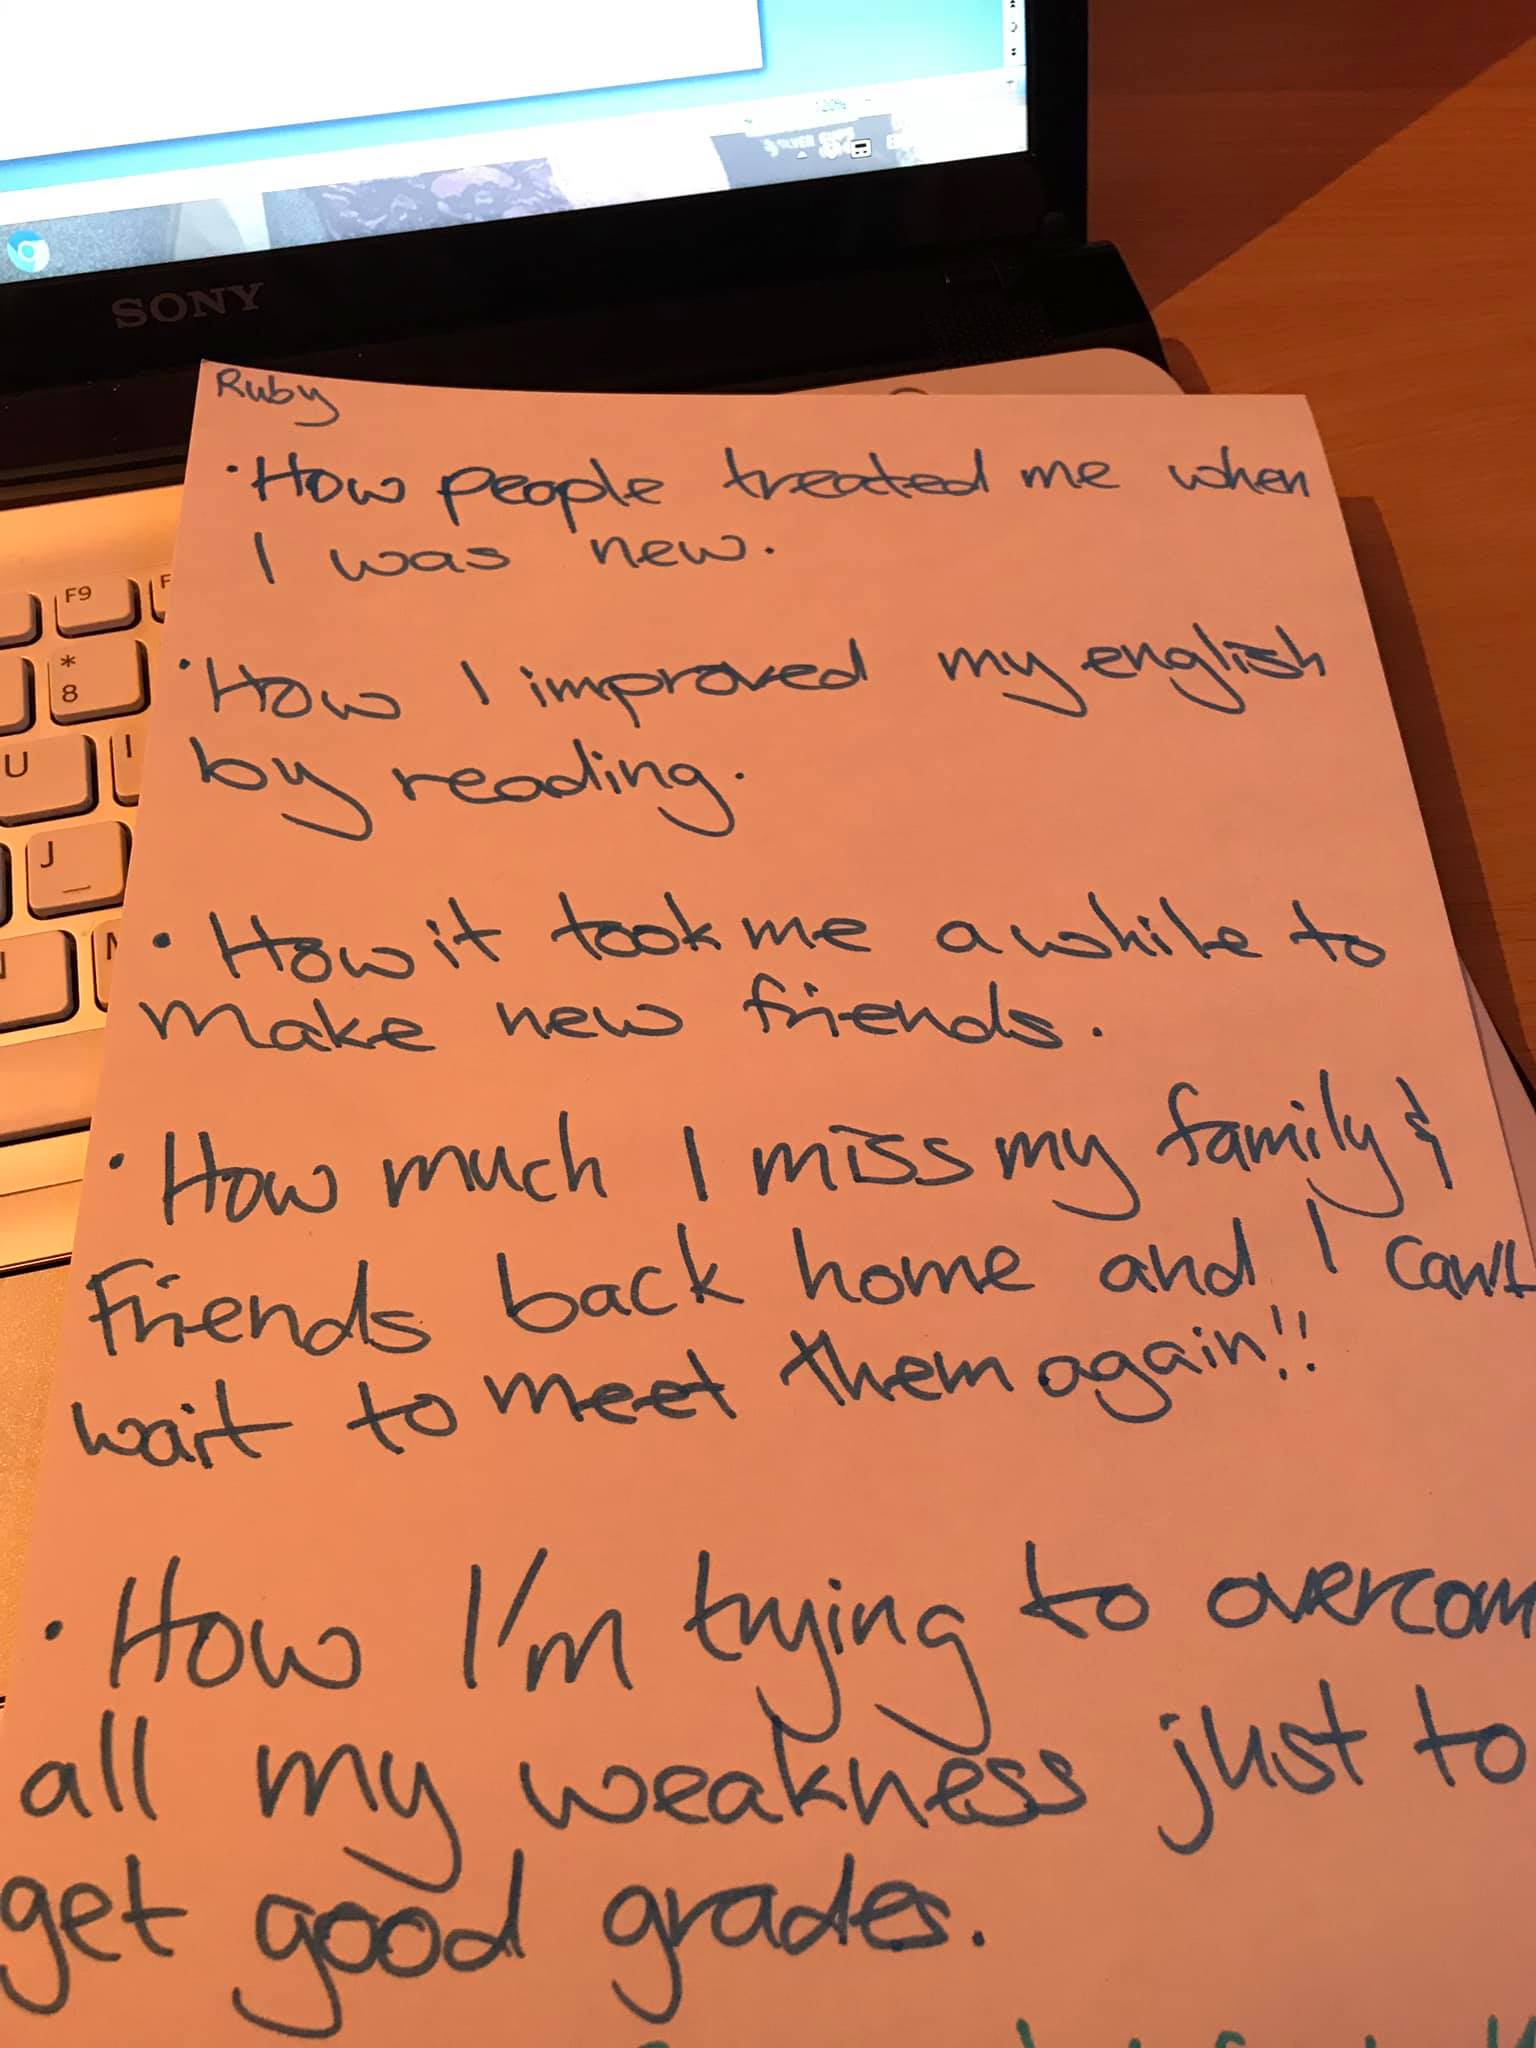 120%
SONY
F9
*
8
U
I
J
N
M
Ruby
• How people treated me when
I was new.
• How I improved my english
by reading.
• How it took me a while to
make new friends.
• How much I miss my family &
Friends back home and I can't
wait to meet them again!!
• How I'm trying to overcom
all my weakness just to
get good grades.